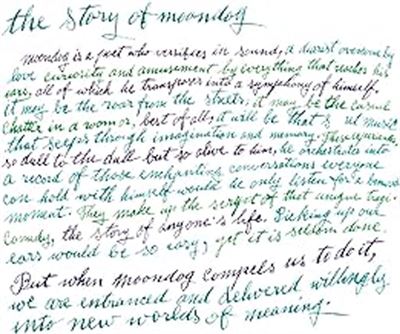 the story of moondog
moondog is a poet who versifies in sound, a diarist overcome by
love curiosity and amusement by everything that reaches his
ears, all of which he transposes into a symphony of himself.
it may be the roar from the streets, it may be the casual
chatter in a room or, best of all, it will be that secret music
that seeps through imagination and memory. These
so dull to the dull but so alive to him, he orchestrates into
a record of those enchanting conversations everyone
can hold with himself would he only listen for a
moment. They make up the script of that unique tragi-
comedy, the story of anyone's life. Picking up our
ears would be so easy, yet it is seldom done.
But when moondog compels us to do it,
we are entranced and delivered willingly
into new worlds of meaning.